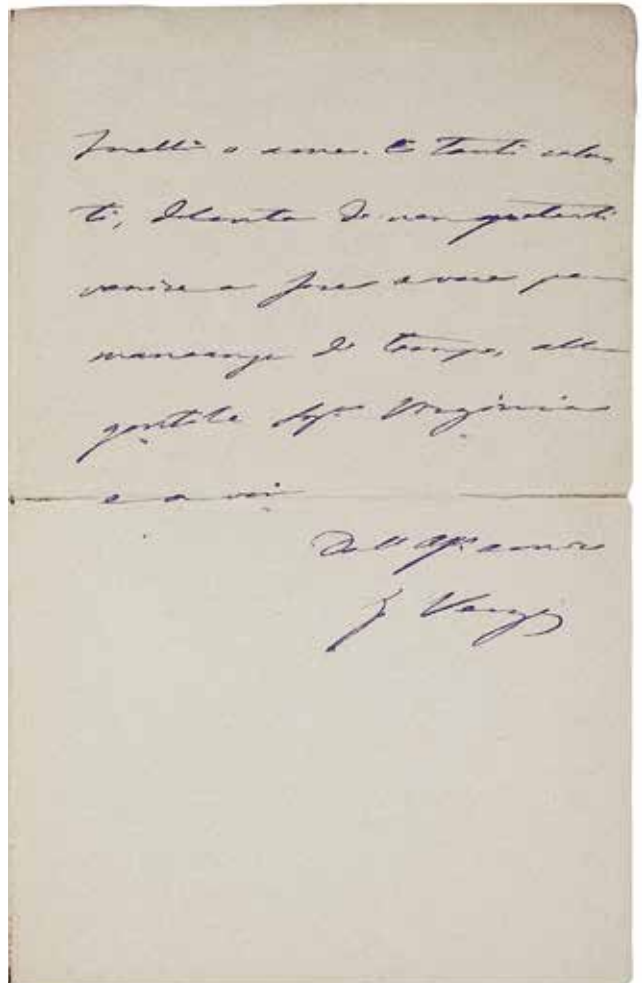 a me. E tanti salu-
ti, dolente di non poterli
venire a fare a voce per
mancanza di tempo, alla
gentile Sigra Virginia
e a voi
Dall'affo amico
G Verga